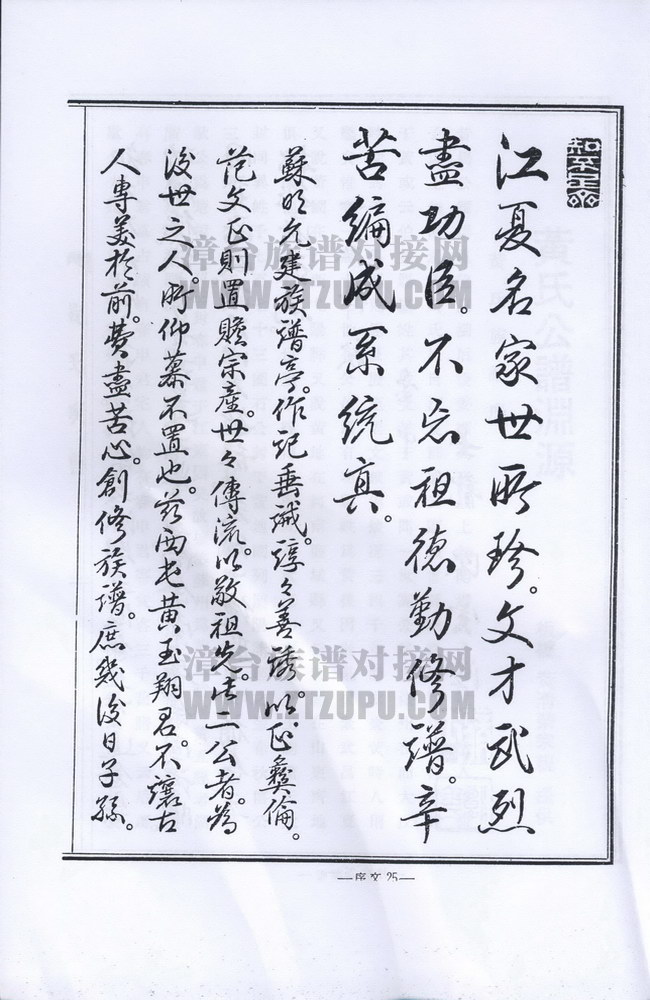 江夏名家世所珍。文才武烈
盡功臣。不忘祖德勤修譜。辛
苦編成系統真。
蘇明允建族譜亭。作記垂誡。諄々善誘。以正彝倫。
范文正則置贍宗產。世々傳流。以敬祖先。此二公者。為
後世之人。所仰慕不置也。茲西屯黃玉翔君。不讓古
人專美於前。費盡苦心。創修族譜。庶幾後日子孫。
漳台族谱对接网
WWW.ZTZUPU.COM
漳台族谱对接网
WWW.ZTZUPU.COM
黃氏公譜淵源
—序文 25—